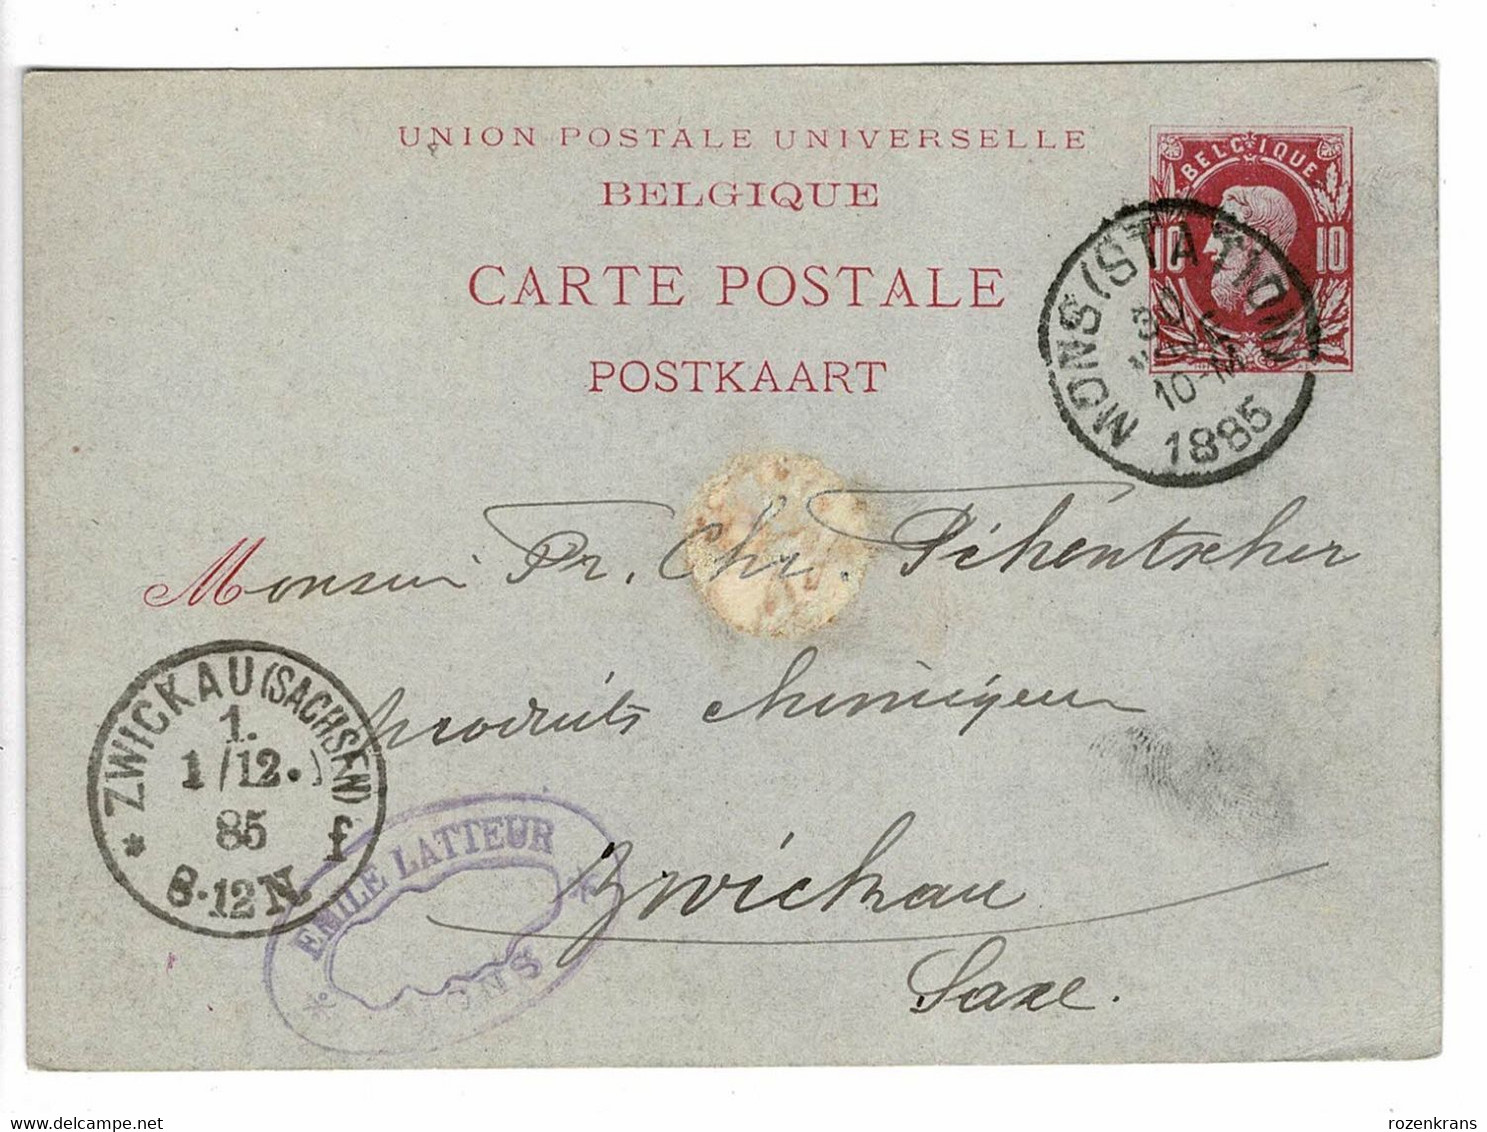 UNION POSTALE UNIVERSELLE
BELGIQUE
CARTE POSTALE
POSTKAART
BELGIQUE
10 10
MONS (STATION)
30
NOVE
10-M
1885
Monsieur Fr. Chr. Fikentscher
produits chimiques
Zwickau
Saxe.
ZWICKAU (SACHSEN)
1.
1/12.
85
8-12 N
* f
EMILE LATTEUR
* MONS *
rozenkrans